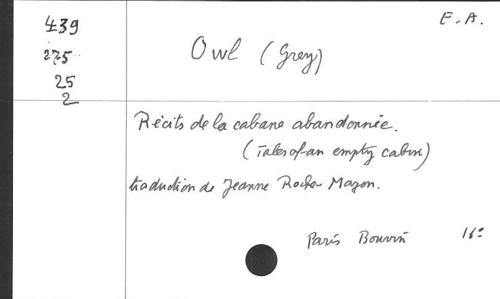 E.A.
439
275
25
2
Owl (Grey)
Récits de la cabane abandonnée.
(Tales of an empty cabin)
traduction de Jeanne Roche-Mazon.
Paris Boivin 16º